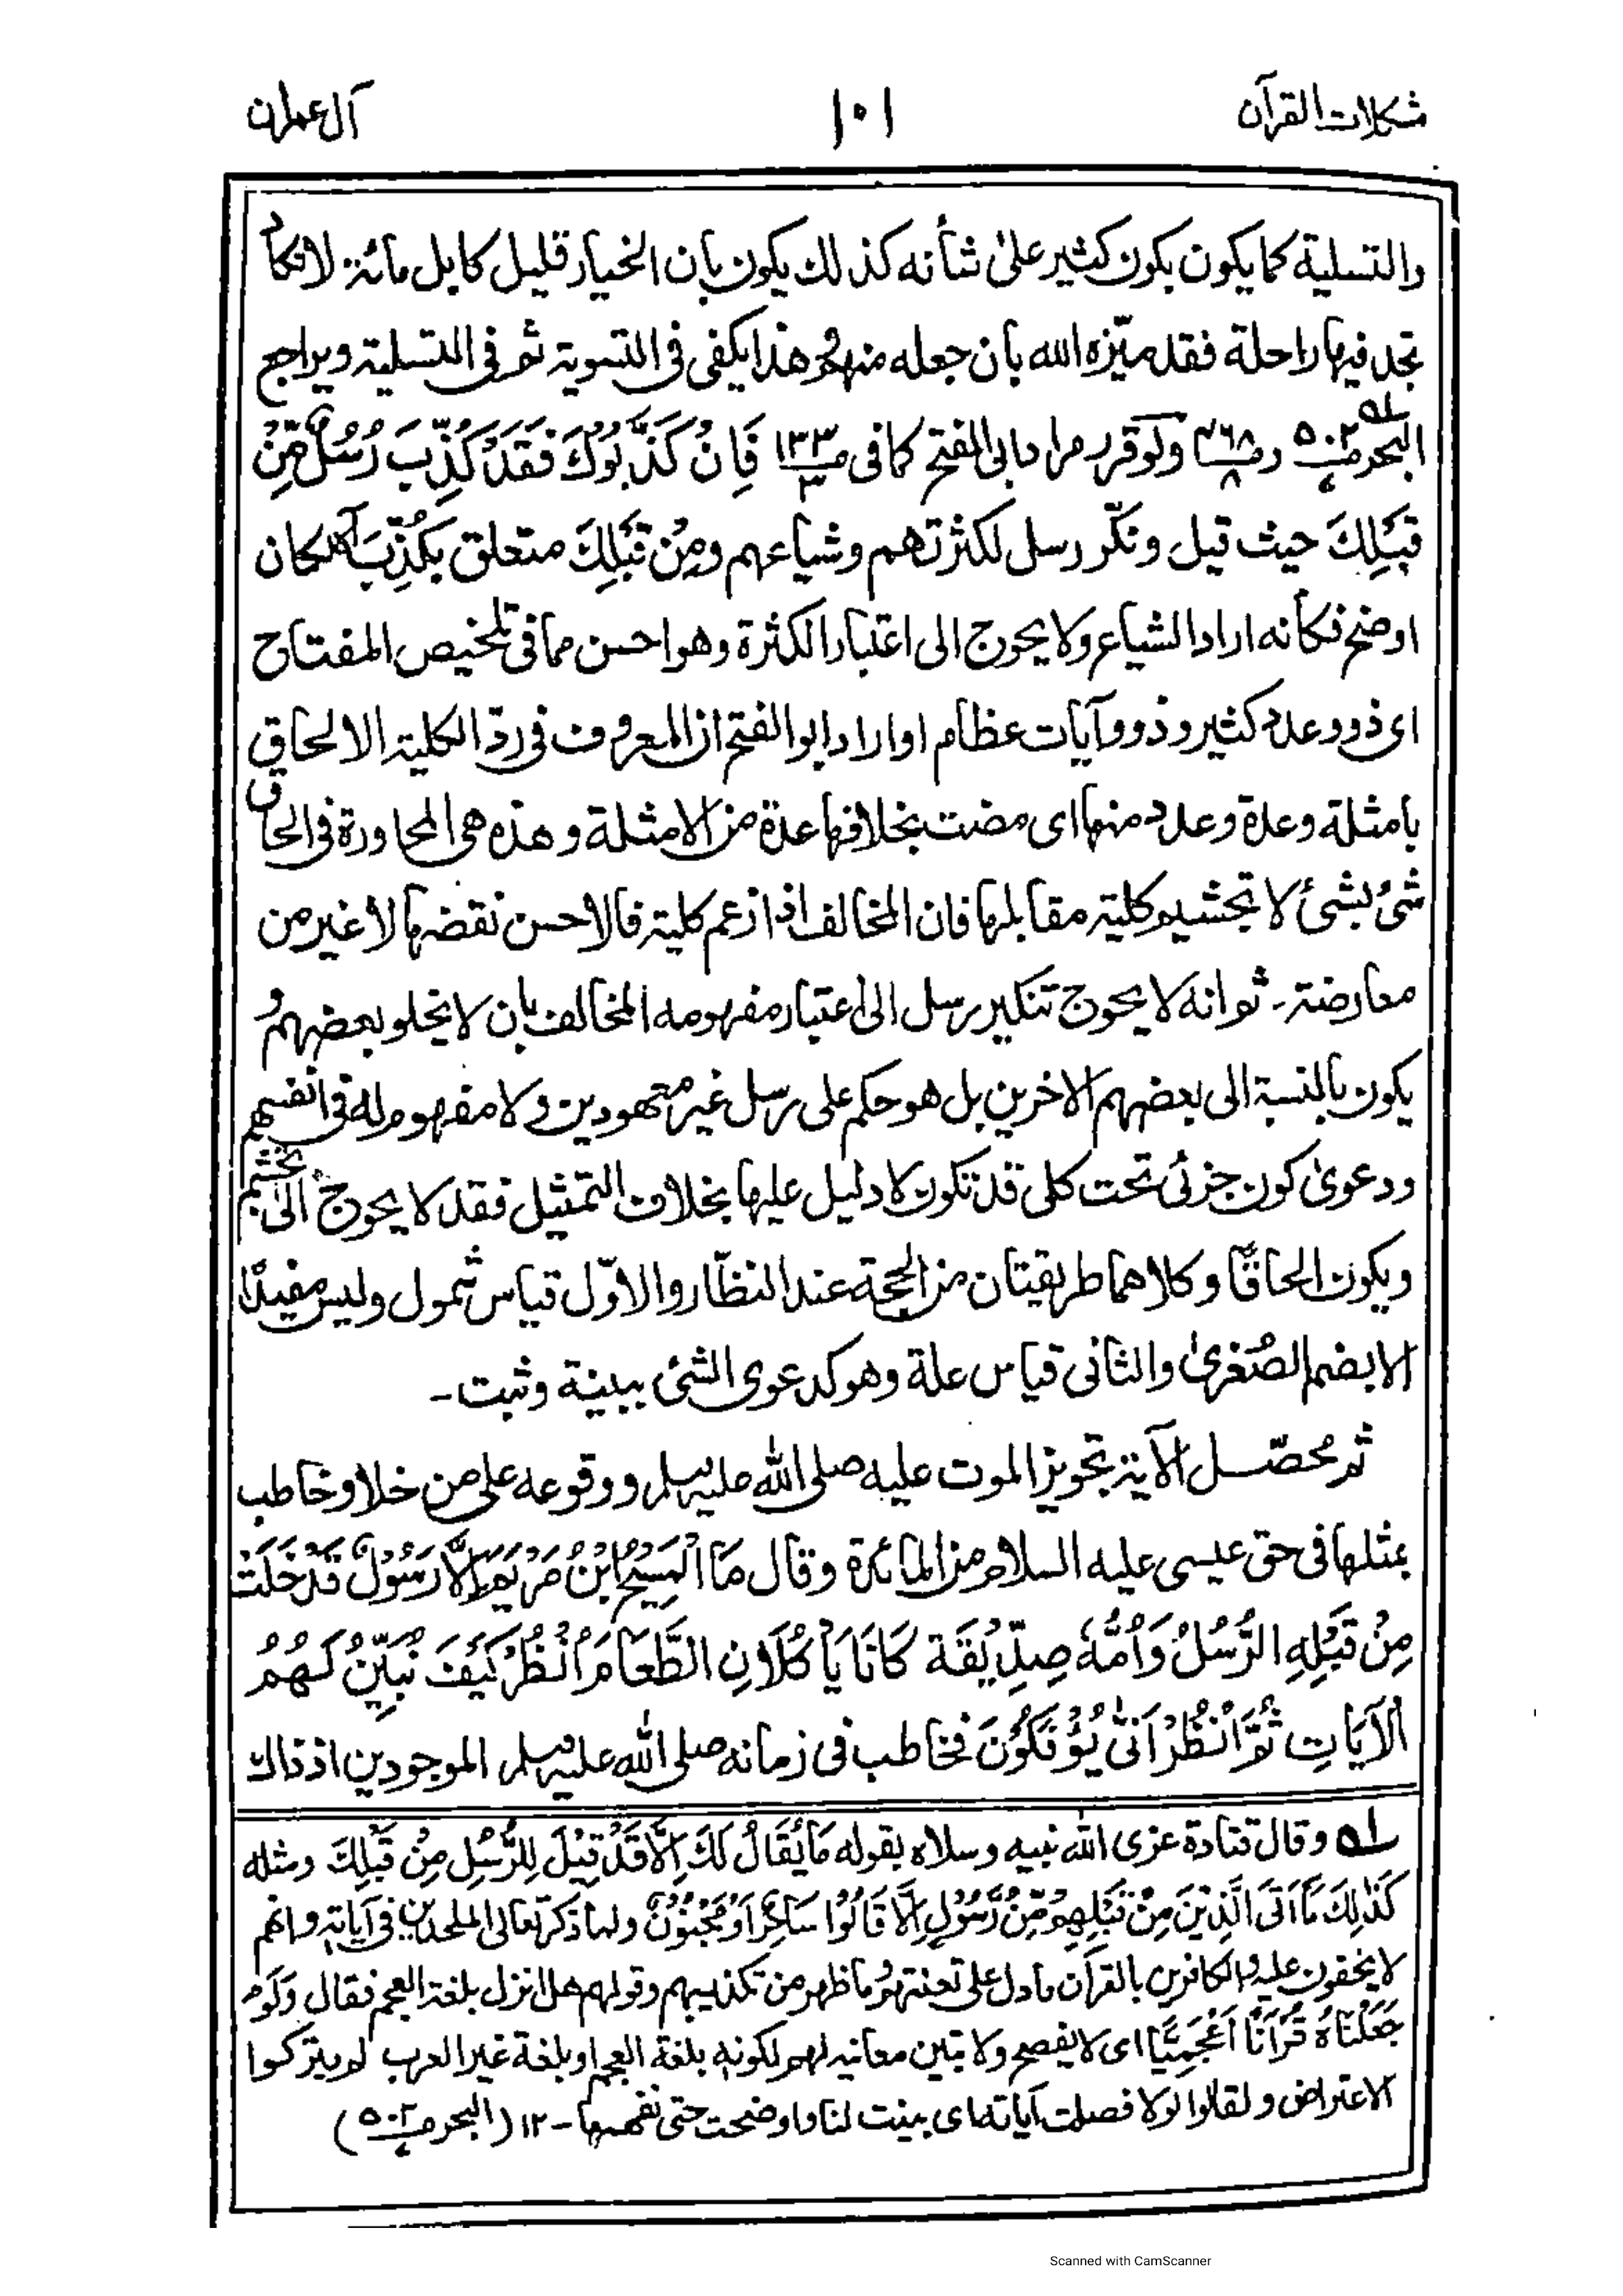 مشكلات القرآن ١٠١ آل عمران
والتسلية كما يكون بكون كثير على شأنه كذلك يكون بان الخيار قليل كابل مائة لا تكاد
تجد فيها راحلة فقد ميّزه الله بان جعله منهم وهذا يكفى فى التسوية ثم فى التسلية ويراجع
البحر ص٥٠٢ وص٤٦٨ ولو قرر مراد ابى الفتح كما فى ص١٣٣ فَاِنْ كَذَّبُوْكَ فَقَدْ كُذِّبَ رُسُلٌ مِّنْ
قَبْلِكَ حيث قيل ونكّر رسل لكثرتهم وشياعهم ومِنْ قَبْلِكَ متعلق بكُذِّبَ لكان
اوضح فكأنه اراد الشياع ولا يحوج الى اعتبار الكثرة وهو احسن مما فى تلخيص المفتاح
اى ذوو عدد كثير وذوو آيات عظام او اراد ابو الفتح ان المعروف فى ردّ الكلية الالحاق
بامثلة وعدة وعدد منها اى مضت بخلافها عدة من الامثلة وهذه هى المحاورة فى الحاق
شئ بشئ لا تجشيم كلية مقابلها فان المخالف اذا زعم كلية فالاحسن نقضها لا غير من
معارضة۔ ثم انه لا يحوج تنكير رسل الى اعتبار مفهومه المخالف بان لا يخلو بعضهم و
يكون بالنسبة الى بعضهم الاخرين بل هو حكم على رسل غير معهودين ولا مفهوم له فى انفسهم
ودعوىٰ كون جزئى تحت كلى قد تكون لا دليل عليها بخلاف التمثيل فقد لا يحوج الى تجشم
ويكون الحاقًا وكلاهما طريقتان من الحجة عند النظّار والاوّل قياس شمول وليس مفيدًا
الا بضم الصُغرىٰ والثانى قياس علة وهو كدعوى الشئ ببينة وثبت۔
ثم مُحصّل الآية تجويز الموت عليه صلى الله عليه وسلم ووقوعه على من خلا وخاطب
بمثلها فى حق عيسى عليه السلام من المائدة وقال مَا الْمَسِيْحُ ابْنُ مَرْيَمَ اِلَّا رَسُوْلٌ قَدْ خَلَتْ
مِنْ قَبْلِهِ الرُّسُلُ وَاُمُّهٗ صِدِّيْقَة كَانَا يَأْكُلَانِ الطَّعَامَ اُنْظُرْ كَيْفَ نُبَيِّنُ لَهُمُ
الْآيَاتِ ثُمَّ انْظُرْ اَنّٰى يُؤْفَكُوْنَ فخاطب فى زمانه صلى الله عليه وسلم الموجودين اذ ذاك
ـه وقال قتادة عزى الله نبيه وسلاه بقوله مَا يُقَالُ لَكَ اِلَّا قَدْ قِيْلَ لِلرُّسُلِ مِنْ قَبْلِكَ ومثله
كَذٰلِكَ مَا اَتَى الَّذِيْنَ مِنْ قَبْلِهِمْ مِّنْ رَّسُوْلٍ اِلَّا قَالُوْا سَاحِرٌ اَوْ مَجْنُوْنٌ ولما ذكر تعالى الملحدين فى آياته وانهم
لا يخفون عليه والكافرين بالقرآن ما دل على تعنتهم وما ظهر من تكذيبهم وقولهم هلا انزل بلغة العجم فقال وَلَوْ
جَعَلْنَاهُ قُرْآنًا اَعْجَمِيًّا اى لا يفصح ولا تبين معانيه لهم لكونه بلغة العجم او بلغة غير العرب لم يتركوا
الاعتراض ولقالوا لولا فصلت آياته اى بينت لنا واوضحت حتى نفهمها۔ ١٢ (البحر ص٥٠٢)
Scanned with CamScanner